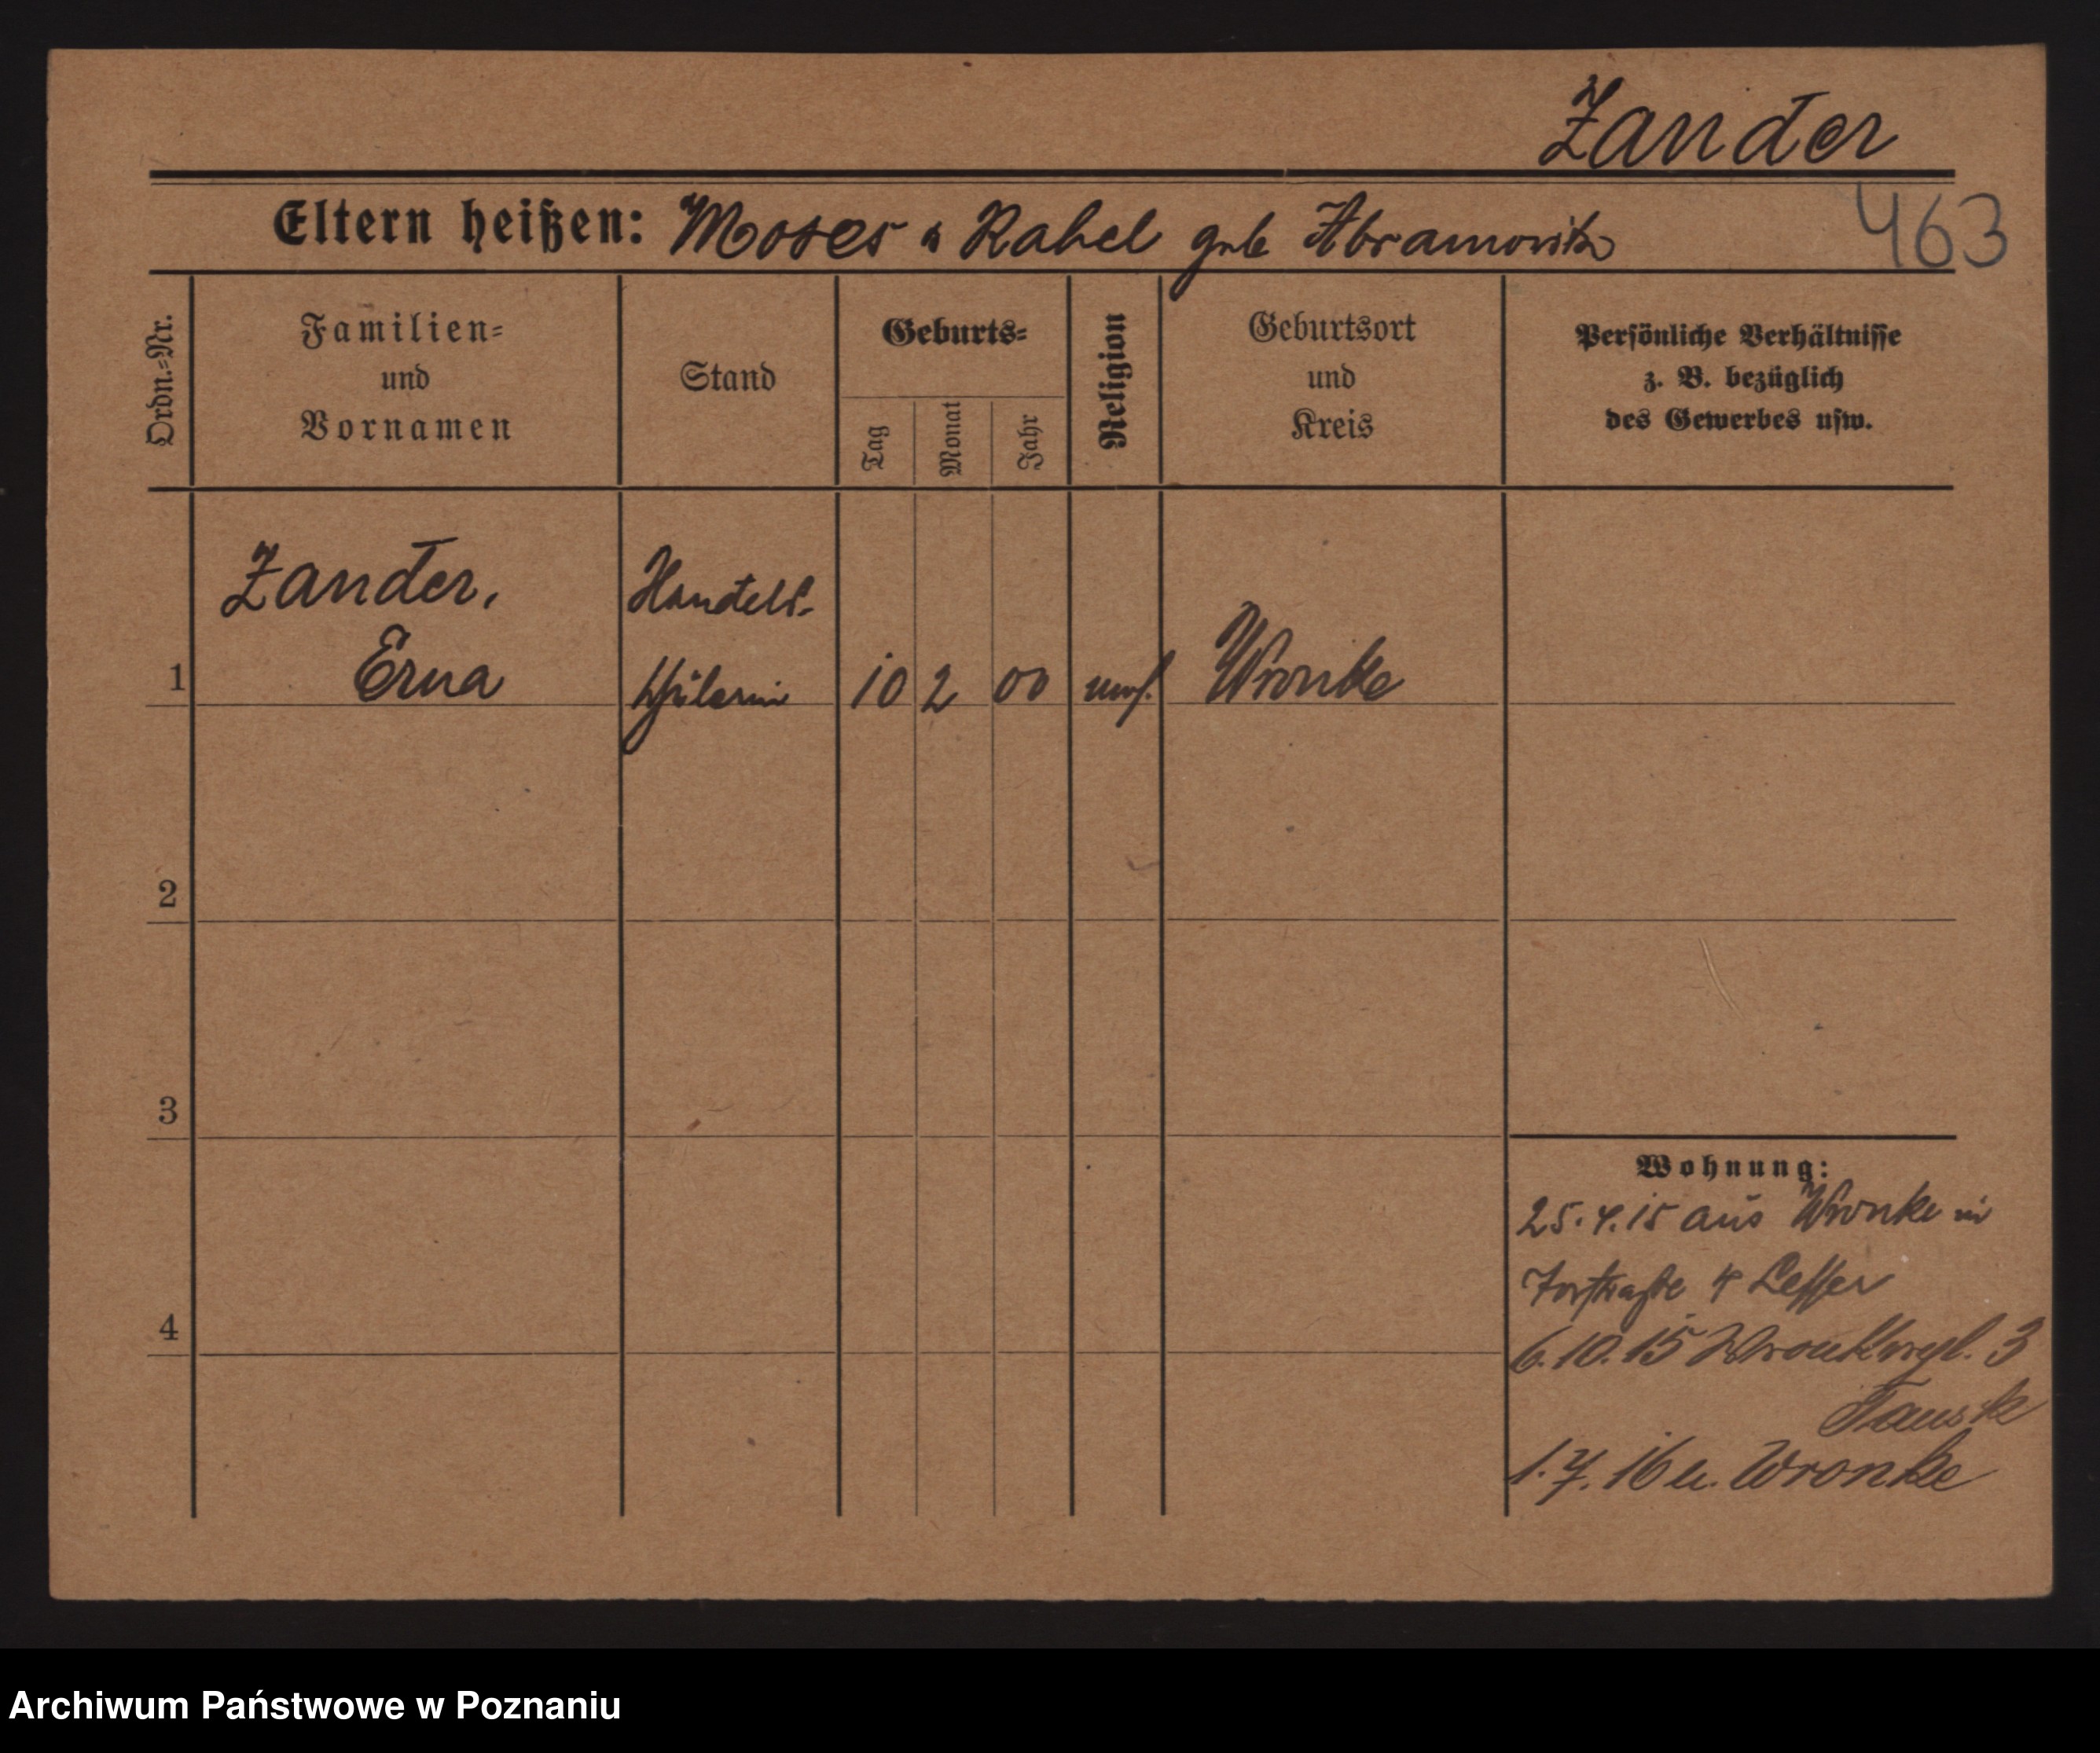 Zander
Eltern heißen: Moses u Rahel geb Abramovitz
463
Ordn.=Nr.
Familien=
und
Vornamen
Stand
Geburts=
Tag
Monat
Jahr
Religion
Geburtsort
und
Kreis
Persönliche Verhältnisse
z. B. bezüglich
des Gewerbes usw.
Zander, Handels-
1 Erna schülerin 10 2 00 mos. Wronke
2
3
4
Wohnung:
25.4.15 aus Wronke in
Torstraße 4 Lesser
6.10.15 3
1.7.16 n. Wronke
Archiwum Państwowe w Poznaniu